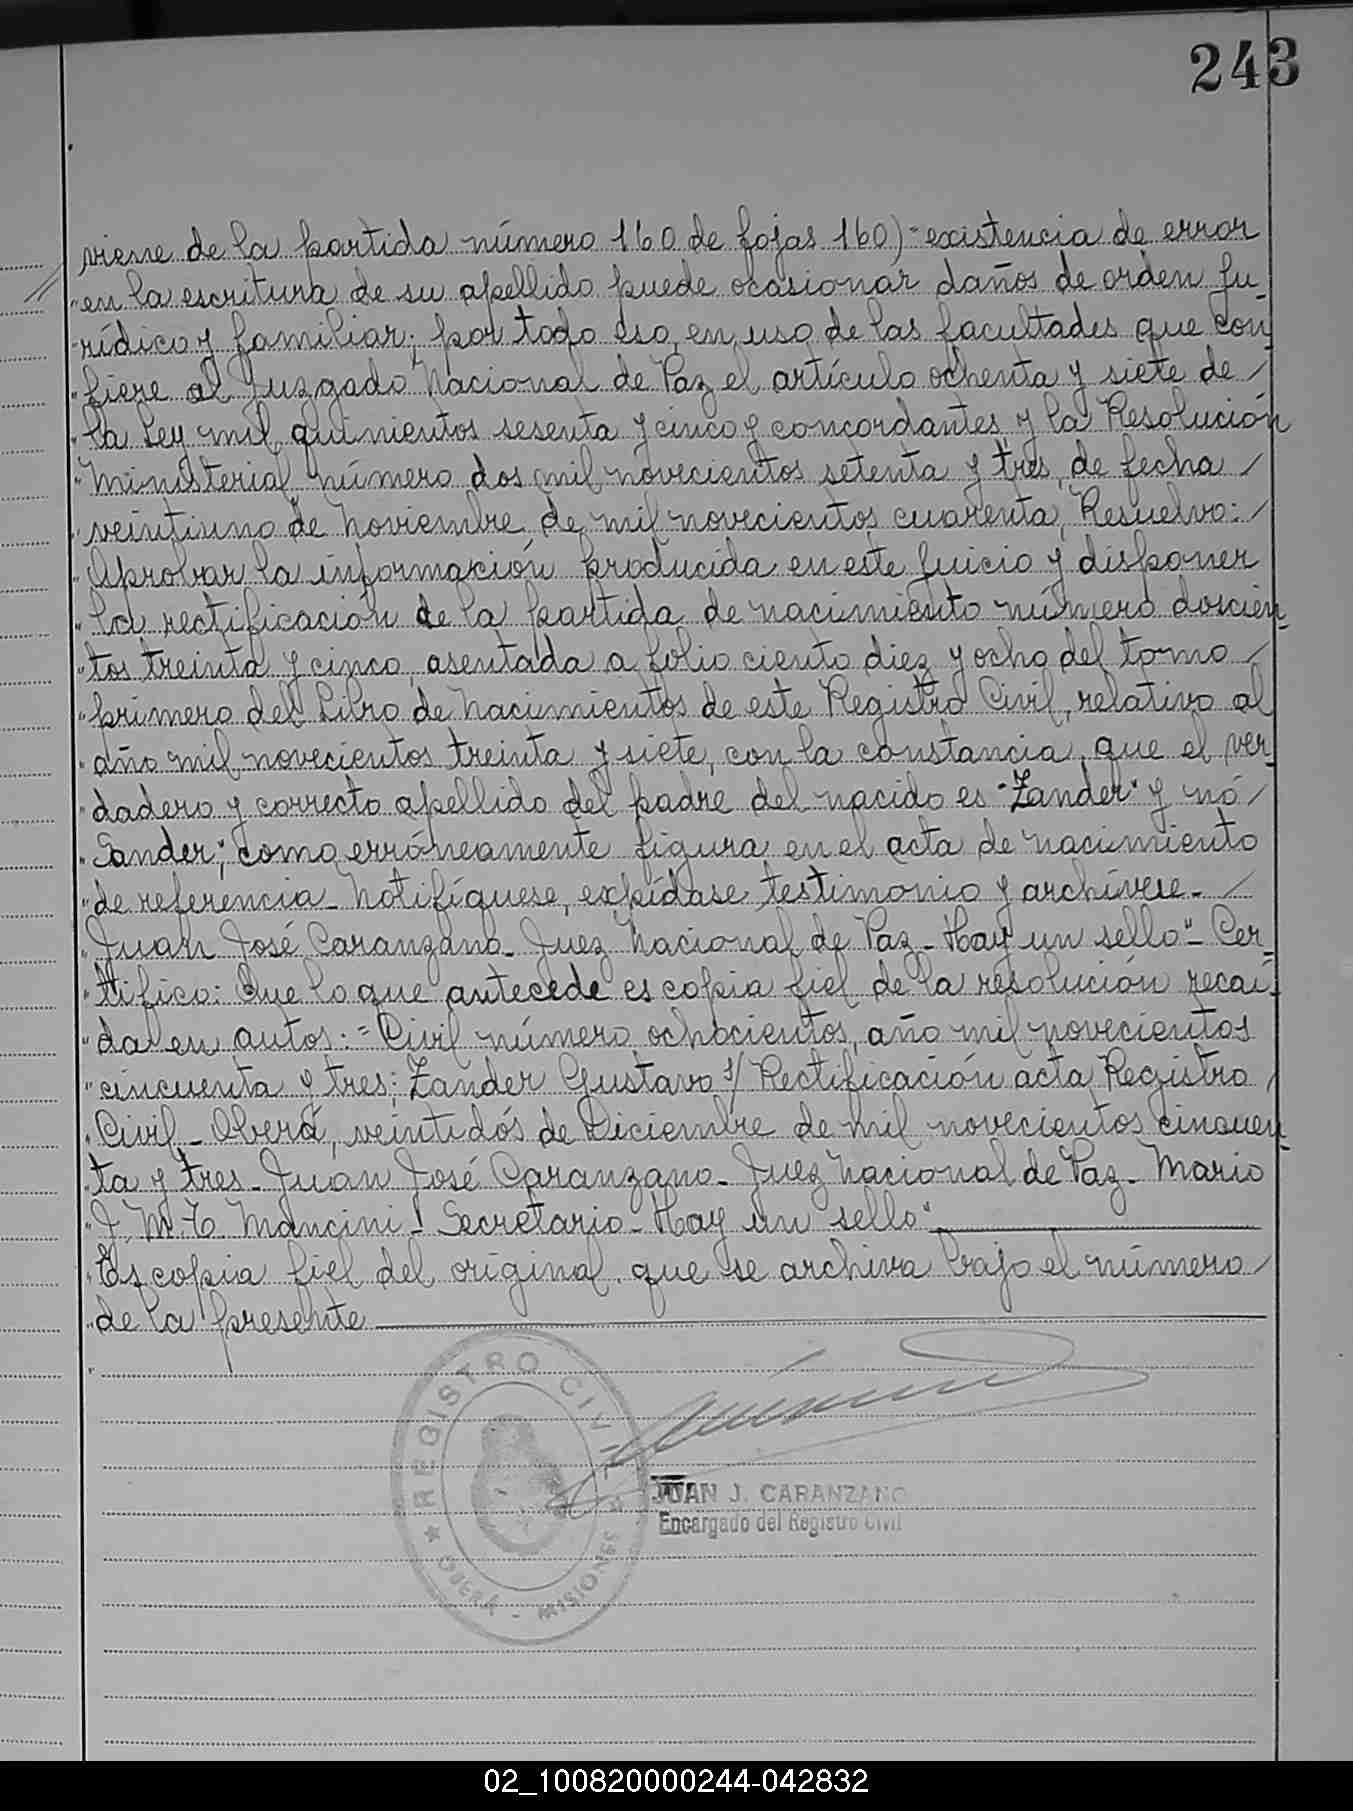 243
viene de la partida número 160 de fojas 160)="existencia de error
"en la escritura de su apellido puede ocasionar daños de orden ju_
"rídico y familiar; por todo eso, en uso de las facultades que con_
"fiere al Juzgado Nacional de Paz el artículo ochenta y siete de /
"la Ley mil quinientos sesenta y cinco y concordantes y la Resolución
"Ministerial número dos mil novecientos setenta y tres, de fecha /
"veintiuno de Noviembre de mil novecientos cuarenta, Resuelvo: /
"Aprobar la información producida en este juicio y disponer
"la rectificación de la partida de nacimiento número doscien_
"tos treinta y cinco, asentada a folio ciento diez y ocho del tomo /
"primero del Libro de Nacimientos de este Registro Civil, relativo al
"año mil novecientos treinta y siete, con la constancia que el ver_
"dadero y correcto apellido del padre del nacido es "Zander" y nó /
"Sander", como erróneamente figura en el acta de nacimiento
"de referencia_ Notifíquese, expídase testimonio y archívese_ /
"Juan José Caranzano_ Juez Nacional de Paz_ Hay un sello"_ Cer_
"tifico: Que lo que antecede es copia fiel de la resolución recaí_
"da en autos:="Civil número ochocientos, año mil novecientos
"cincuenta y tres; Zander Gustavo s/ Rectificación acta Registro /
"Civil_ Oberá, veintidós de Diciembre de mil novecientos cincuen_
"ta y tres_ Juan José Caranzano_ Juez Nacional de Paz_ Mario
"J. M. T. Mancini_ Secretario_ Hay un sello"
"Es copia fiel del original que se archiva bajo el número /
"de la presente
REGISTRO CIVIL
JUAN J. CARANZANO
Encargado del Registro Civil
★ OBERÁ - MISIONES ★
02_100820000244-042832